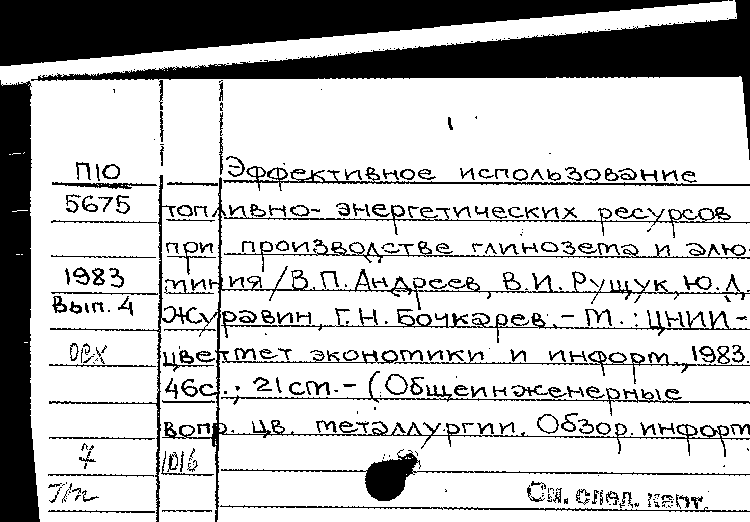 П10
Эффективное использование
5675
топливно-энергетических ресурсов
при производстве глинозема и алю-
1983
миния / В.П. Андреев, В.И. Рущук, Ю.Д.
Вып. 4
Журавин, Г.Н. Бочкарев. - М.: ЦНИИ-
ОВХ
цветмет экономики и информ., 1983.
46с.; 21см. - (Общеинженерные
вопр. цв. металлургии. Обзор. информ
7
1016
См. след. карт.